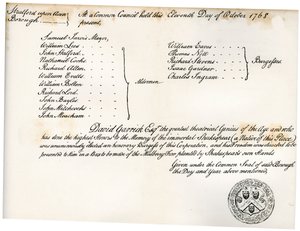 Stratford upon Avon
Borough.
At a Common Council held this Eleventh Day of October 1768
present,
Samuel Jarvis Mayor,
William Evetts
John
Nathaniel Cooke
Richard
William Evitts
William Bolton
Richard Lord
John Bayles
John
John Meacham
Aldermen
William Eaves
Thomas Nott
Richard Stevens
Isaac Gardner
Charles Ingram
Burgesses.
David Garrick Esqr. the greatest theatrical Genius of the Age and who
has done the highest Honour to the Memory of the immortal Shakespeare (a Native of this Place)
was unanimously Elected an honorary Burgess of this Corporation, and
presented to Him in a Box to be made of the Mulberry Tree planted by Shakespeare's own Hands
Given under the Common Seal of said Borough
the Day and Year above mentioned.